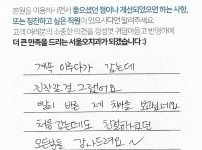 본원을 이용하시면서 좋으셨던 점이나 개선되었으면 하는 사항,
또는 칭찬하고 싶은 직원이 있으시다면 말씀해주세요.
고객 여러분의 소중한 의견을 정성껏 귀담아듣고 반영하여
더 큰 만족을 드리는 서울오치과가 되겠습니다 :)
계속 이루다가 갔는데
진작갈걸 그랬어요
벌써 바른 제 치아를 보게되네요
처음 갔는데도 친절하셨던
모든분들 감사드려요 ~